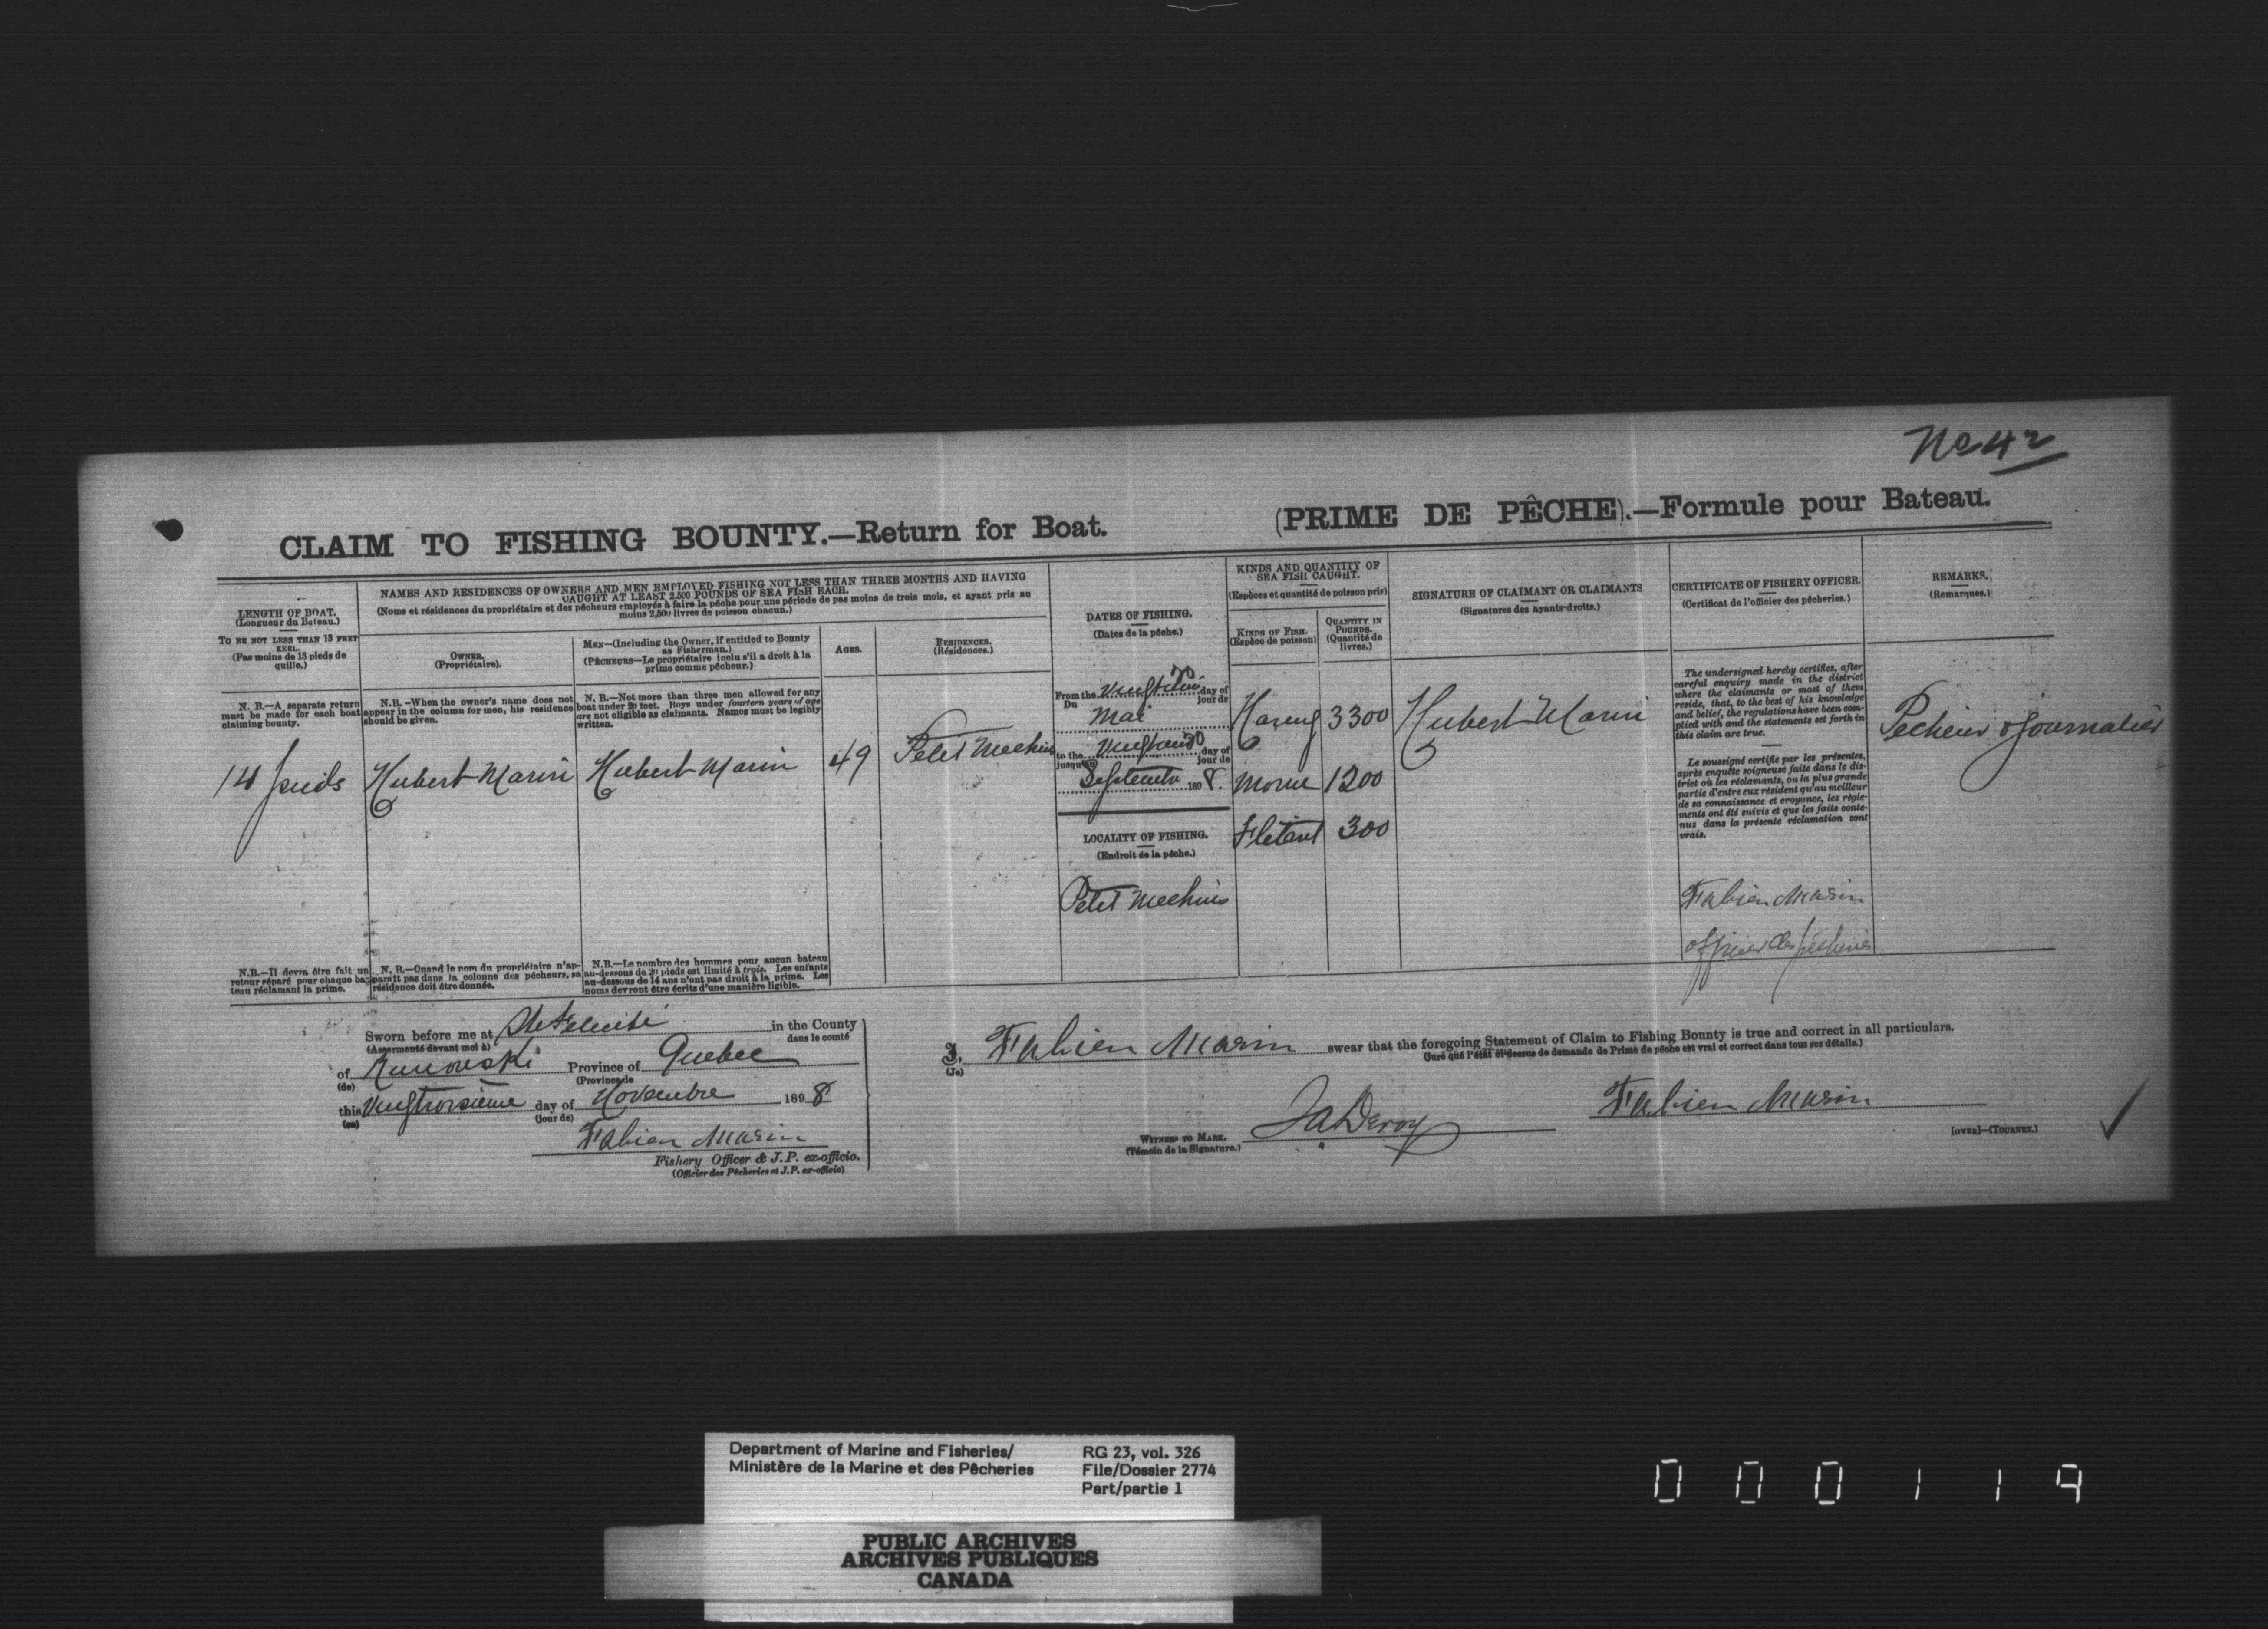 No 42
CLAIM TO FISHING BOUNTY.—Return for Boat. (PRIME DE PÊCHE).—Formule pour Bateau.
LENGTH OF BOAT.
(Longueur du Bateau.)
TO BE NOT LESS THAN 13 FEET
KEEL.
(Pas moins de 13 pieds de
quille.)
N. B.—A separate return
must be made for each boat
claiming bounty.
14 pieds
N.B.—Il devra être fait un
retour séparé pour chaque ba-
teau réclamant la prime.
NAMES AND RESIDENCES OF OWNERS AND MEN EMPLOYED FISHING NOT LESS THAN THREE MONTHS AND HAVING
CAUGHT AT LEAST 2,500 POUNDS OF SEA FISH EACH.
(Noms et résidences du propriétaire et des pêcheurs employés à faire la pêche pour une période de pas moins de trois mois, et ayant pris au
moins 2,500 livres de poisson chacun.)
OWNER.
(Propriétaire).
N.B.—When the owner's name does not
appear in the column for men, his residence
should be given.
Hubert Marin
N. B.—Quand le nom du propriétaire n'ap-
paraît pas dans la colonne des pêcheurs, sa
résidence doit être donnée.
MEN—(Including the Owner, if entitled to Bounty
as Fisherman.)
(PÊCHEURS—Le propriétaire inclu s'il a droit à la
prime comme pêcheur.)
N. B.—Not more than three men allowed for any
boat under 20 feet. Boys under fourteen years of age
are not eligible as claimants. Names must be legibly
written.
Hubert Marin
N.B.—Le nombre des hommes pour aucun bateau
au-dessous de 20 pieds est limité à trois. Les enfants
au-dessous de 14 ans n'ont pas droit à la prime. Les
noms devront être écrits d'une manière ligible.
AGES.
49
RESIDENCES.
(Résidences.)
Petit Mechins
DATES OF FISHING.
(Dates de la pêche.)
From the day of
Du jour de
Mai
to the day of
jusqu'au jour de
Septembre 1898.
LOCALITY OF FISHING.
(Endroit de la pêche.)
Petit Mechins
KINDS AND QUANTITY OF
SEA FISH CAUGHT.
(Espèces et quantité de poisson pris)
KINDS OF FISH.
(Espèce de poisson)
QUANTITY IN
POUNDS.
(Quantité de
livres.)
Hareng 3300
Morue 1200
Fletant 300
SIGNATURE OF CLAIMANT OR CLAIMANTS
(Signatures des ayants-droits.)
Hubert Marin
CERTIFICATE OF FISHERY OFFICER.
(Certificat de l'officier des pêcheries.)
The undersigned hereby certifies, after
careful enquiry made in the district
where the claimants or most of them
reside, that, to the best of his knowledge
and belief, the regulations have been com-
plied with and the statements set forth in
this claim are true.
Le soussigné certifie par les présentes,
après enquête soigneuse faite dans le dis-
trict où les réclamants, ou la plus grande
partie d'entre eux résident qu'au meilleur
de sa connaissance et croyance, les règle-
ments ont été suivis et que les faits conte-
nus dans la présente réclamation sont
vrais.
Fabien Marin
officier des pêcheries
REMARKS.
(Remarques.)
Pecheur & Journalier
Sworn before me at Ste Felicité in the County
(Assermenté devant moi à) dans le comté
of Rimouski Province of Quebec
(de) (Province de
this Vingtroisième day of Novembre 1898
(ce) (jour de)
Fabien Marin
Fishery Officer & J.P. ex-officio.
(Officier des Pêcheries et J.P. ex-officio)
I, Fabien Marin swear that the foregoing Statement of Claim to Fishing Bounty is true and correct in all particulars.
(Je) (juré que l'état ci-dessus de demande de Prime de pêche est vrai et correct dans tous ses détails.)
Fabien Marin
WITNESS TO MARK.
(Témoin de la Signature.)
[OVER]—(TOURNEZ.)
Department of Marine and Fisheries/
Ministère de la Marine et des Pêcheries
RG 23, vol. 326
File/Dossier 2774
Part/partie 1
PUBLIC ARCHIVES
ARCHIVES PUBLIQUES
CANADA
000119